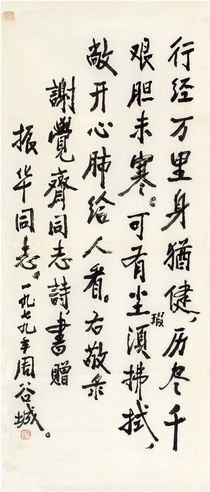 行经万里身犹健，历尽千
艰胆未寒。可有尘瑕须拂拭，
敞开心肺给人看。右敬录
謝覺齋同志詩，書贈
振华同志。一九七九年周谷城。